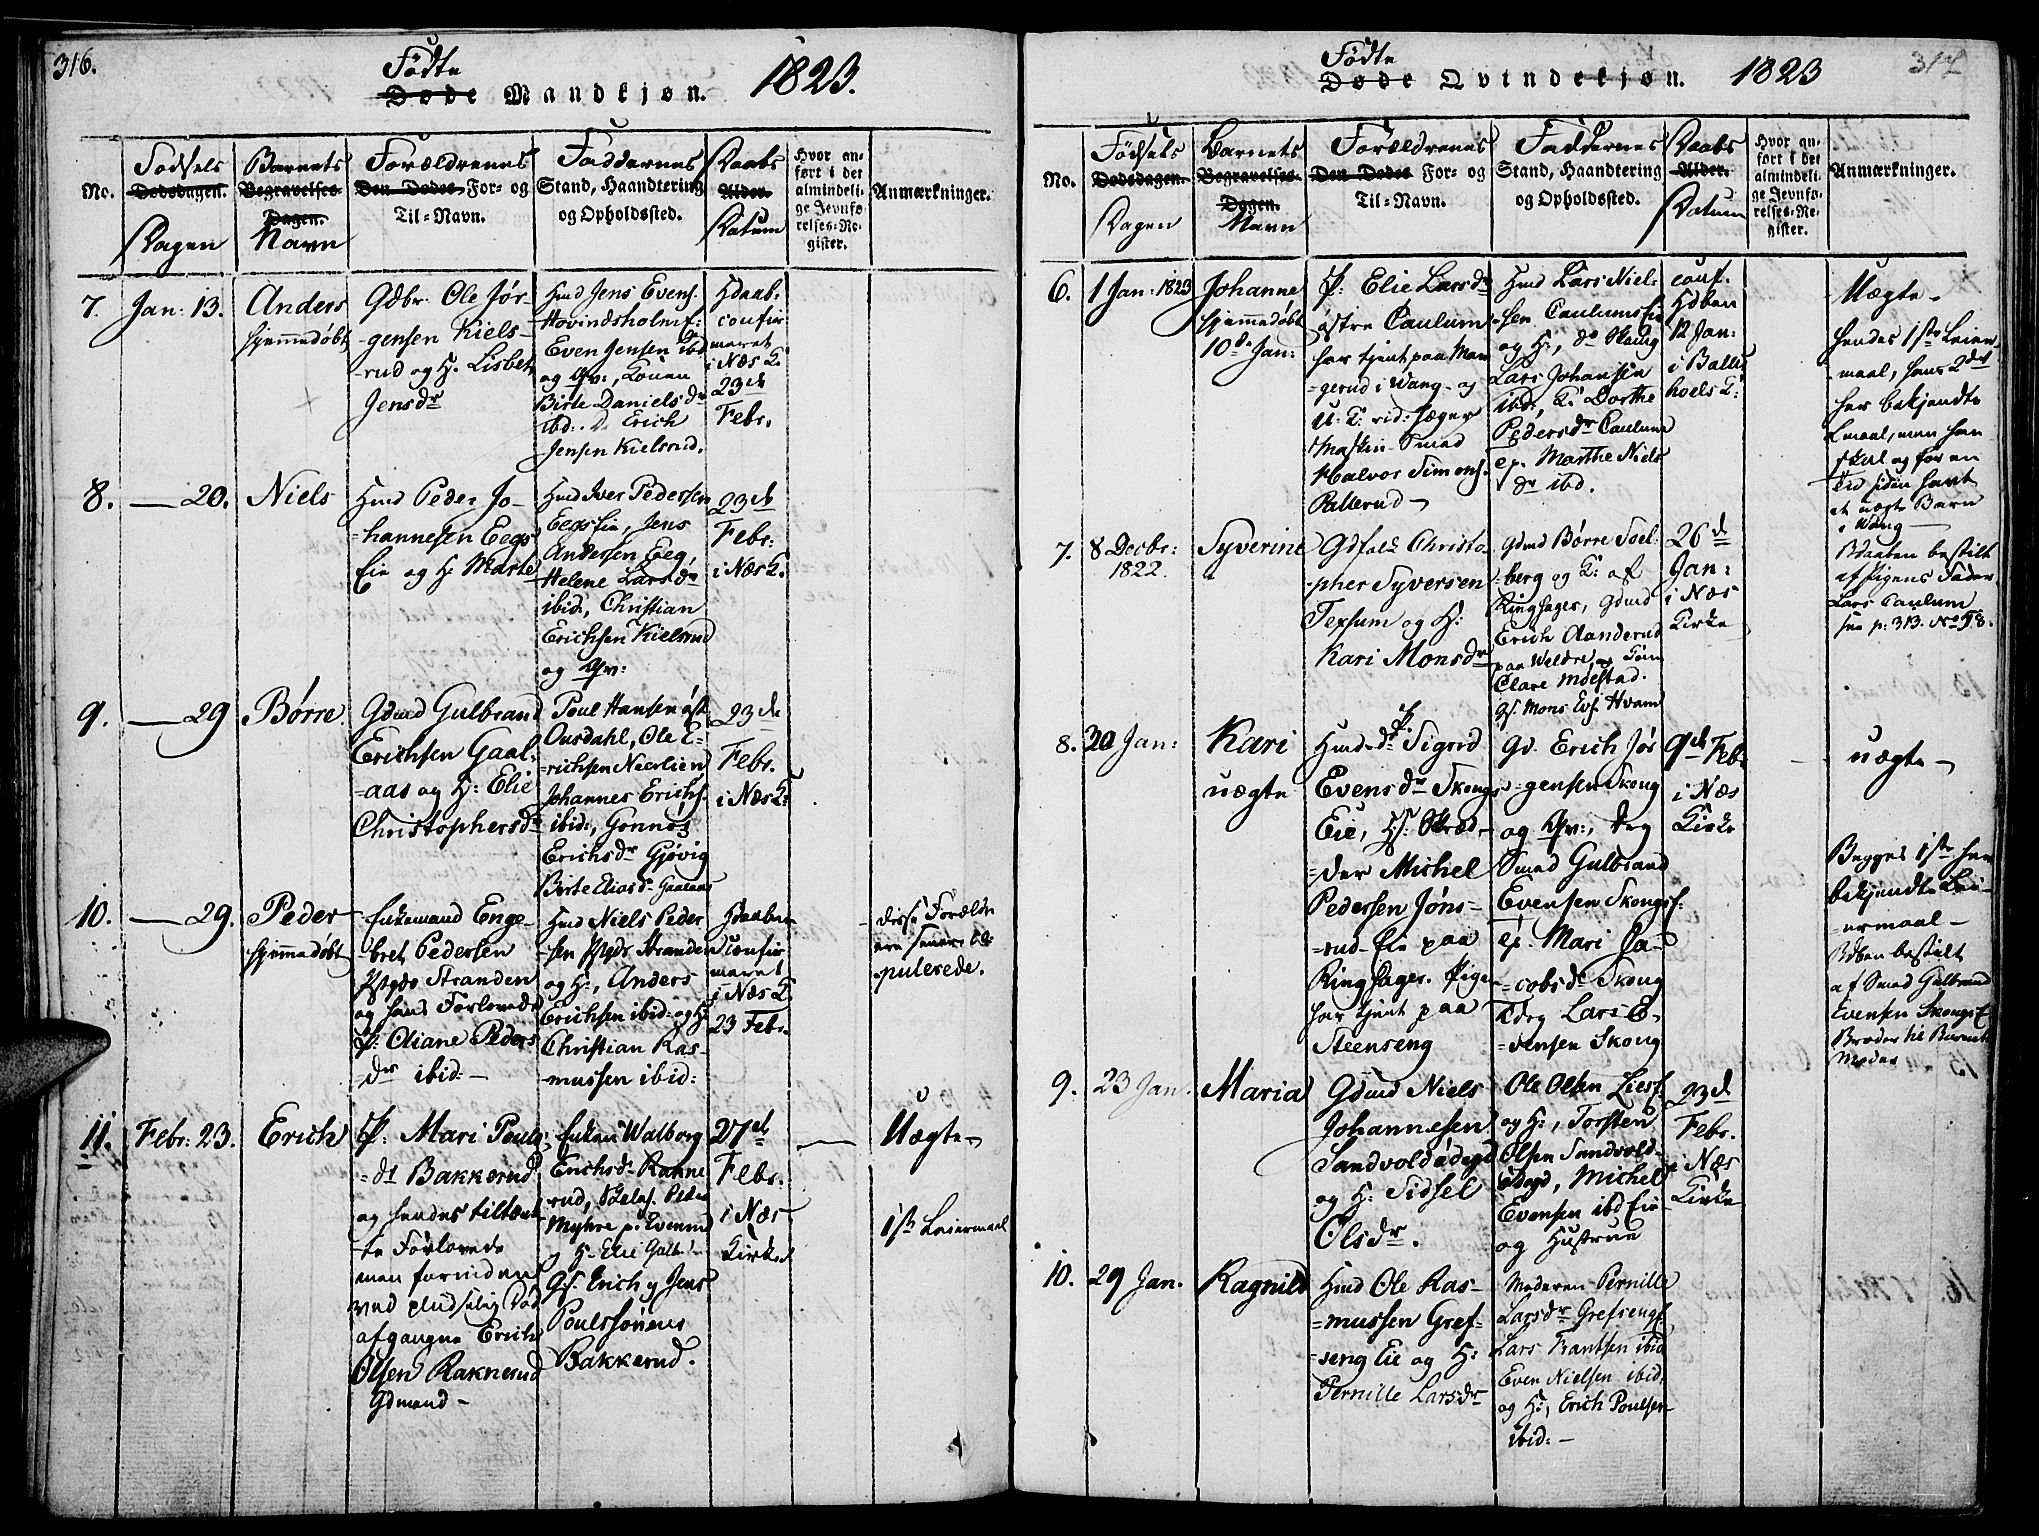 316.
Fødte
Døde Mandkjøn. 1823.
No.
Fødsels
Dødsdagen.
Dagen
Barnets
Begravelses-
Dagen.
Navn
Forældrenes
Den Dødes For- og
Til-Navn.
Faddernes
Stand, Haandtering
og Opholdssted.
Daabs
Alder.
Datum
Hvor an-
ført i det
almindeli-
ge Jevnfø-
relses-Re-
gister.
Anmærkninger.
7. Jan: 13.
Anders
hjemmedøbt
Gdbr. Ole Jør-
gensen Kiels-
rud og H. Lisbet
Jensdr
Hmd Jens Evens.
Hovindsholmf:
Even Jensen ibd
og Qv:, Konen
Birte Daniels dr
ibd:. Erich
Jensen Kielsrud.
Hdaab.
confir
meret
i Næs K:
23de
Febr.
8. — 20.
Niels
Hmd Peder Jo-
hannesen Eegs
Eie og H: Marte
Hmd Iver Pedersen
Eegs Eie, Jens
Andersen Eeg,
Helene Larsdr
ibid:, Christian
Erichsen Kielsrud
og Qv:
23de
Febr:
i Næs K:
9. — 29
Børre.
Gdmd Gulbrand
Erichsen Gaal-
aas og H: Elie
Christophersdr
Poul Hansen øst
Ousdahl, Ole E-
richsen Nierlien
Johannes Erichs.
ibid:, Gonnor
Erichsdr Gjøvig
Birte Eliasdr Gaalaas
23de
Febr.
i Næs K:
10. — 29.
Peder
hjemmedøbt
Enkemand Enge-
bret Pedersen
Stranden
og hans Forlovede
P: Oliane Peders
dr ibid: —
Hmd Niels Peder
sen Stranden
og H:, Anders
Erichsen ibid: og H:
Christian Ras-
mussen ibid:
Hdaaben
confir
meret
i Næs K
23 Febr.
disse Forældre
ere senere co-
pulerede.
11. Febr: 23.
Erich
P: Mari Pouls
dr Bakkerud
og hendes tiltænk-
te Forlovede
men forinden
ved pludselig Død
afgangne Erich
Olsen Raknerud
Gdmand —
Enken Walborg
Erichsdr Rakne
rud, Peder
Myhre p. Evenrud
og H. Elie Gulb
Gs. Erich og Jens
Poulssønner
Bakkerud.
27de
Febr.
i Næs
Kirke.
Uægte —
1ste Leiermaal
317
Fødte
Døde Qvindekjøn. 1823
No.
Fødsels
Dødsdagen.
Dagen
Barnets
Begravelses-
Dagen.
Navn
Forældrenes
Den Dødes For- og
Til-Navn.
Faddernes
Stand, Haandtering
og Opholdssted.
Daabs
Alder.
Datum
Hvor an-
ført i det
almindeli-
ge Jevnfø-
relses-Re-
gister.
Anmærkninger.
6. 1 Jan: 1823
Johanne
hjemmedøbt
10de Jan:
P: Elie Larsdr
østre Caulum
har tjent paa Man
gerud i Wang — og
U: K: vid: Jæger
Maskin-Smed
Halvor Simens.
Pallerud —
Hmd Lars Niel-
sen Caulumseie
og H:, do Skoug
Lars Johansen
ibd:, K: Dorthe
Pedersdr Caulum
ep. Marthe Niels
dr ibd.
conf.
Hdben
12 Jan:
i Balles
hoels K:
Uægte —
hendes 1ste Leier
maal, hans 2det
her bekjendte
Lmaal, men han
skal og for en
Tid siden havt
et uægte Barn
i Wang —
Bdaaben bestilt
af Pigens Fader
Lars Caulum
see p: 313. No 98.
7. 8 Decbr:
1822.
Syverine
Gdfolk Christo-
pher Syversen
Texsum og H:
Kari Monsdr
Gdmd Børre Soel-
berg og K: af
Ringsager, Gdmd
Erich Aanderud
paa Weldre, og
Clare Moestad.
Gs. Mons Evs. Hvam
26de
Jan:
i Næs
Kirke
8. 20 Jan:
Kari
uægte
P.
Hmdsdr Sigrid
Evensdr Skougs
Eie, Hs: Skræd-
der Michel
Pedersen Jøns-
rud-Eie paa
Ringsager. Pigen
har tjent paa
Steenseng
Gv. Erich Jør
gensen Skoug
og Qv:, Dreng
Smed Gulbrand
Evensen Skougsf.
ep. Mari Ja-
cobsdr Skoug
Lars E-
vensen Skoug
9de Febr
i Næs
Kirke
uægte —
Begges 1ste her
bekjendte Lei-
ermaal —
Bdben bestilt
af Smed Gulbrand
Evensen Skougs E
Broder til Barnets
Moder
9. 23 Jan.
Maria
Gdmd Niels
Johannesen
Sandvold ødegd
og H: Sidsel
Olsdr.
Ole Olsen Liesf.
og H:, Torsten
Olsen Sandvold-
ødegd, Michel
Evensen ibd Eie
og Hustrue
23d
Febr.
i Næs
Kirke
10. 29 Jan.
Ragnild
Hmd Ole Ras-
mussen Gref-
seng Eie og H:
Pernille Larsdr
Moderen Pernille
Larsdr Grefsengf.
Lars Frantsen ibid
Even Nielsen ibid,
og H:, Erich Poulsen
ibid: —